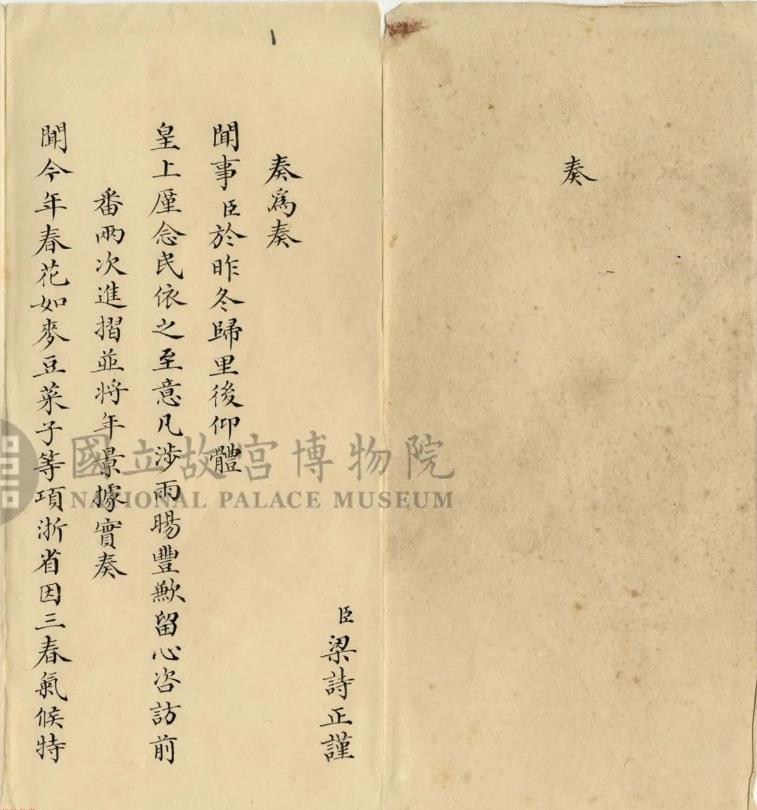 奏
臣梁詩正謹
奏為奏
聞事臣於昨冬歸里後仰體
皇上廑念民依之至意凡涉雨暘豐歉留心咨訪前
番兩次進摺並將年景據實奏
聞今年春花如麥豆菜子等項浙省因三春氣候特
國立故宮博物院
NATIONAL PALACE MUSEUM